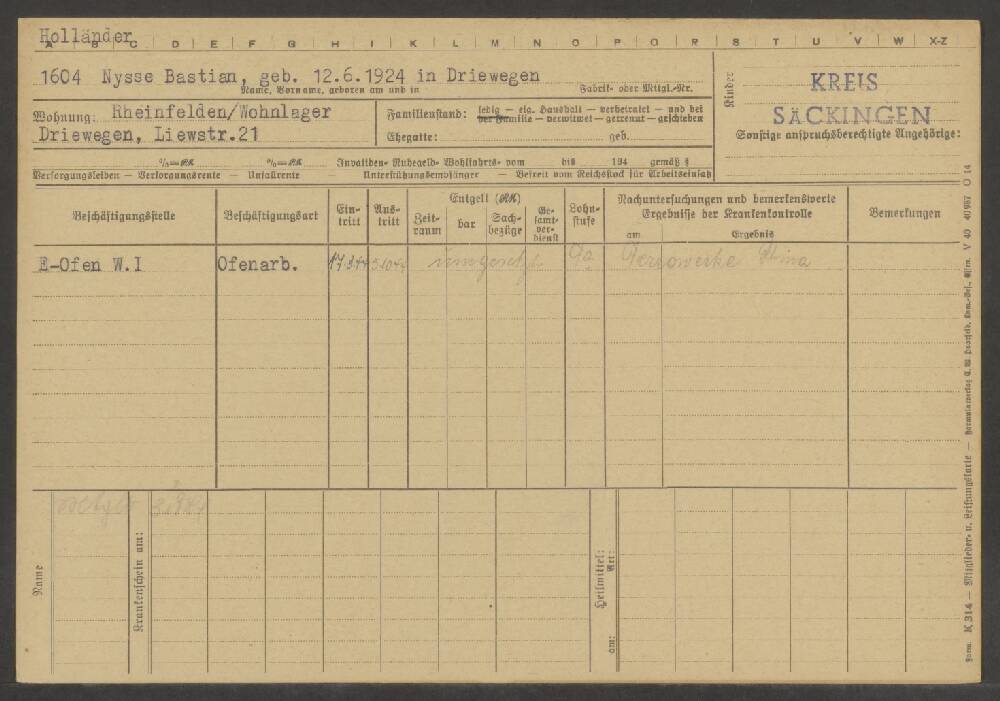 Holländer
A B C D E F G H I K L M N O P Q R S T U V W X-Z
1604 Nysse Bastian, geb. 12.6.1924 in Driewegen
Name, Vorname, geboren am und in Fabrik- oder Mitgl.-Nr.
Kinder
KREIS
SÄCKINGEN
Wohnung: Rheinfelden/Wohnlager
Driewegen, Liewstr.21
Familienstand: ledig — eig. Haushalt — verheiratet — und bei
der Familie — verwitwet — getrennt — geschieden
Ehegatte: geb.
Sonstige anspruchsberechtigte Angehörige:
%=RM %=RM Invaliden- Ruhegeld- Wohlfahrts- vom bis 194 gemäß §
Versorgungsleiden — Versorgungsrente — Unfallrente — Unterstützungsempfänger — Befreit vom Reichsstock für Arbeitseinsatz
Beschäftigungsstelle Beschäftigungsart Ein-
tritt Aus-
tritt Entgelt (RM)
Zeit-
raum bar Sach-
bezüge Ge-
samt-
ver-
dienst Lohn-
stufe Nachuntersuchungen und bemerkenswerte
Ergebnisse der Krankenkontrolle
am Ergebnis Bemerkungen
E-Ofen W.I Ofenarb. 17.3.44 umgesetzt
Name
Krankenschein am:
Heilmittel:
Art:
am:
Form. K 314 — Mitglieder- u. Leistungskarte —
V 40 40 967 O 14